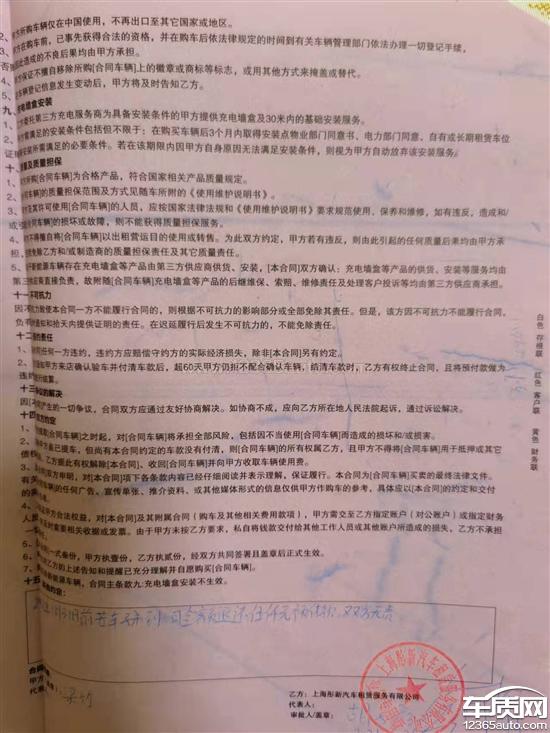 方所购车辆仅在中国使用，不再出口至其它国家或地区。
方在购车前，已事先获得合法的资格，并在购车后依法律规定的时间到有关车辆管理部门依法办理一切登记手续，
此造成的不良后果均由甲方承担。
方保证不擅自移除所购[合同车辆]上的徽章或商标等标志，或用其他方式来掩盖或替代。
车辆登记信息发生变动后，甲方将及时告知乙方。
充电墙盒安装
委托第三方充电服务商为具备安装条件的甲方提供充电墙盒及30米内的基础安装服务。
需满足的安装条件包括但不限于：在购买车辆后3个月内取得安装点物业部门同意书、电力部门同意、自有或长期租赁车位
安装所需满足的必要条件。若在该期限内因甲方自身原因无法满足安装条件，则视为甲方自动放弃该安装服务。
及质量担保
车辆]为合格产品，符合国家相关产品质量规定。
车辆]的质量担保范围及方式见随车所附的《使用维护说明书》。
及其许可使用[合同车辆]的人员，应按国家法律法规和《使用维护说明书》要求规范使用、保养和维修，如有违反，造成和/
合同车辆]的损坏或故障，则不能获得质量担保服务。
不得擅自将[合同车辆]以出租营运目的使用或转售。为此双方约定，甲方若有违反，则由此引起的任何质量后果均由甲方承
免除乙方和/或制造商的质量担保责任及其它质量责任。
新能源车辆存在充电墙盒等产品由第三方供应商供货、安装，[本合同]双方确认：充电墙盒等产品的供货、安装等服务均由
第三方供应商直接负责，故附随[合同车辆]充电墙盒等产品的后继维保、索赔、维修责任及处理客户投诉等均由第三方供应商承担。
十一 不可抗力
因不可抗力致使本合同一方不能履行合同的，则根据不可抗力的影响部分或全部免除其责任。但是，该方因不可抗力不能履行合同，
负有及时通知和拾天内提供证明的责任。在迟延履行后发生不可抗力的，不能免除责任。
的责任
任何一方违约，违约方应赔偿守约方的实际经济损失，除非[本合同]另有约定。
知甲方来店确认验车并付清车款后，超60天甲方仍拒不配合确认车辆，结清车款时，乙方有权终止合同，且将预付款做为
违约
十三 争议的解决
产生的一切争议，合同双方应通过友好协商解决。如协商不成，应向乙方所在地人民法院起诉，通过诉讼解决。
十四
[合同车辆]之时起，对[合同车辆]将承担全部风险，包括因不当使用[合同车辆]而造成的损坏和/或损害。
方已提车，但尚有本合同约定的车款没有付清，则[合同车辆]的所有权属乙方，且甲方不得将[合同车辆]用于抵押或其它
乙方据此有权解除[本合同]、收回[合同车辆]并向甲方收取车辆使用费。
双方申明，对[本合同]项下各条款内容已经仔细阅读并表示理解，保证履行。本合同为[合同车辆]买卖的最终法律文件。
的任何广告、宣传单张、推介资料、或其他媒体形式的信息仅供甲方作购车的参考，具体应以[本合同]的约定和交付
甲方合法权益，对[本合同]及其附属合同（购车及其他相关费用款项），甲方需交至乙方指定账户（对公账户）或指定财务
时需要相关收据或发票。由于甲方未按乙方要求，私自将钱款交付给其他工作人员或其他账户所造成的损失，乙方不承担
一式叁份，甲方执壹份，乙方执贰份，经双方共同签署且盖章后正式生效。
乙方的上述告知和提醒已充分理解并自愿购买[合同车辆]。
新能源车辆，合同主条款九:充电墙盒安装不生效。
十五
双方无责
甲方
代表
乙方：上海彤新汽车租赁服务有限公司
代表人：
审批人/盖章：
白色 存根联
红色 客户联
黄色 财务联
上海彤新汽车租赁服务有限公司
车质网
12365auto.com